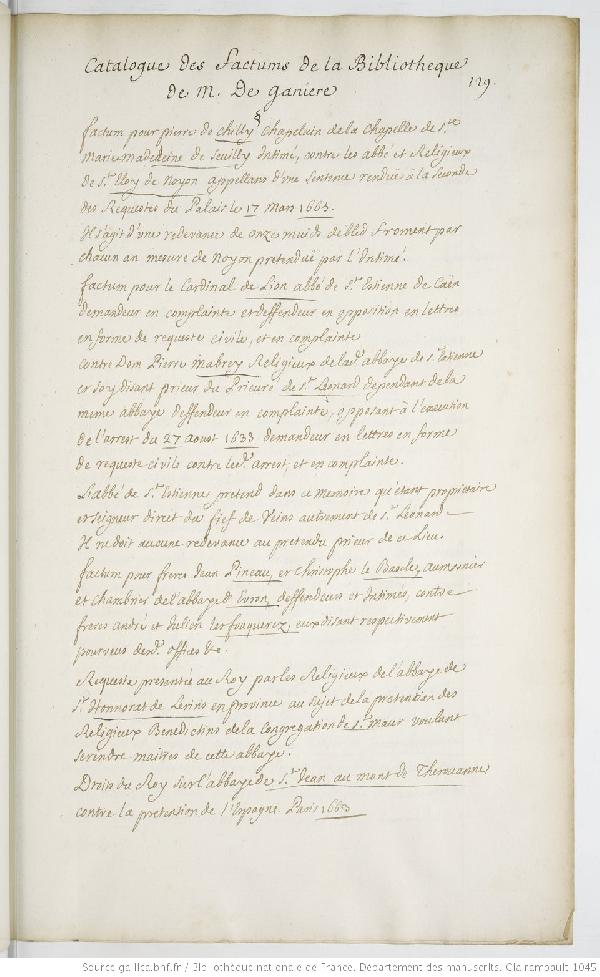 Catalogue des Factums de la Bibliotheque
de M. De ganiere
129.
§
factum pour pierre de chilly Chapelain de la chapelle de Ste
Marie Madeleine de Seuilly Intimé, contre les abbé et Religieux
de St Eloy de Noyon appellans d'une sentence rendue à la seconde
des Requestes du Palais le 17 Mars 1663.
Il s'agit d'une redevance de onze muids de bled froment par
chacun an mesure de Noyon pretenduë par l'Intimé.
factum pour le Cardinal de Lion abbé de St Estienne de Caën
demandeur en complainte et deffendeur en opposition en lettres
en forme de requeste civile, et en complainte
contre Dom Pierre Mabrey Religieux de lad. abbaye de St Estienne
et soy disant prieur du Prieuré de St Leonard dependant de la
meme abbaye deffendeur en complainte, opposant à l'execution
de l'arrest du 27 aoust 1633 demandeur en lettres en forme
de requeste civile contre led. arrest, et en complainte.
L'abbé de St Estienne pretend dans ce memoire qu'etant proprietaire
et seigneur direct du fief de Veins autrement de St Leonard
Il ne doit aucune redevance au pretendu prieur de ce Lieu.
factum pour freres Jean Pineau, et Christophe le Bascle, aumonier
et chambrier de l'abbaye d'Evron, deffendeurs et Intimés, contre
freres andré et Julien les fouquerez, eux disant respectivement
pourveus desd. offices &c.
Requeste presentée au Roy par les Religieux de l'abbaye de
St Honnorat de Lerins en provence au sujet de la pretention des
Religieux Benedictins de la Congregation de St Maur voulant
se rendre maitres de cette abbaye.
Droits du Roy sur l'abbaye de St Jean au mont de Therouanne
contre la pretention de l'Espagne Paris 1663
Source gallica.bnf.fr / Bibliothèque nationale de France. Département des manuscrits. Clairambault 1045